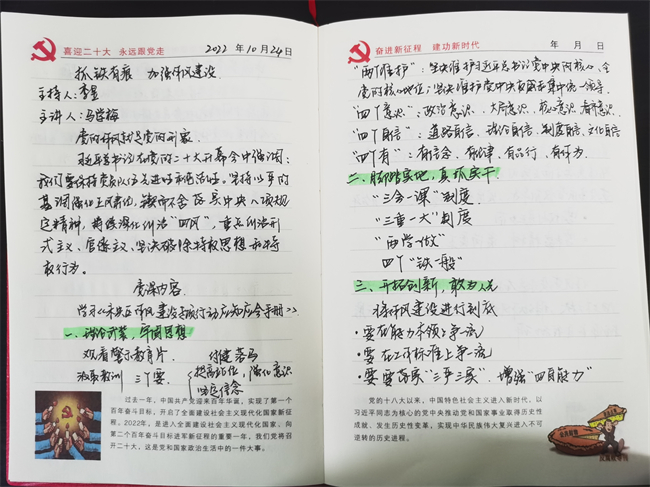 喜迎二十大 永远跟党走
2022 年 10 月 24 日
抓铁有痕 加强作风建设
主持人:李昱
主讲人:马
党的作风就是党的形象
习近平总书记在党的二十大开幕会中强调:
我们要保持党员队伍先进性和纯洁性。坚持以严的
基调强化正风肃纪,锲而不舍落实中央八项规
定精神,持续深化纠治“四风”,重点纠治形
式主义、官僚主义、坚决破除特权思想和特
权行为。
党课内容
一、理论武装,牢固思想
观看警示教育片
三个要
提高站位,强化意识
坚定信念
过去一年,中国共产党迎来百年华诞,实现了第一个
百年奋斗目标,开启了全面建设社会主义现代化国家新征
程。2022年,是进入全面建设社会主义现代化国家、向
第二个百年奋斗目标进军新征程的重要一年,我们党将召
开二十大,这是党和国家政治生活中的一件大事。
奋进新征程 建功新时代
年 月 日
“两个维护”:坚决维护习近平总书记党中央的核心、全
党的核心地位;坚决维护党中央权威和集中统一领导。
“四个意识”:政治意识、大局意识、核心意识、看齐意识
“四个自信”:道路自信、理论自信、制度自信、文化自信
“四个有”:有信念、有纪律、有品行、有作为
二、脚踏实地,真抓实干
“三会一课”制度
“三重一大”制度
“两学一做”
四个“铁一般”
三、开拓创新,敢为人先
将作风建设进行到底
·要在能力本领上争一流
·要在工作标准上争一流
·要 落实“三严三实”,增强“四自能力”
党的十八大以来,中国特色社会主义进入新时代。以
习近平同志为核心的党中央推动党和国家事业取得历史性
成就、发生历史性变革,实现中华民族伟大复兴进入不可
逆转的历史进程。